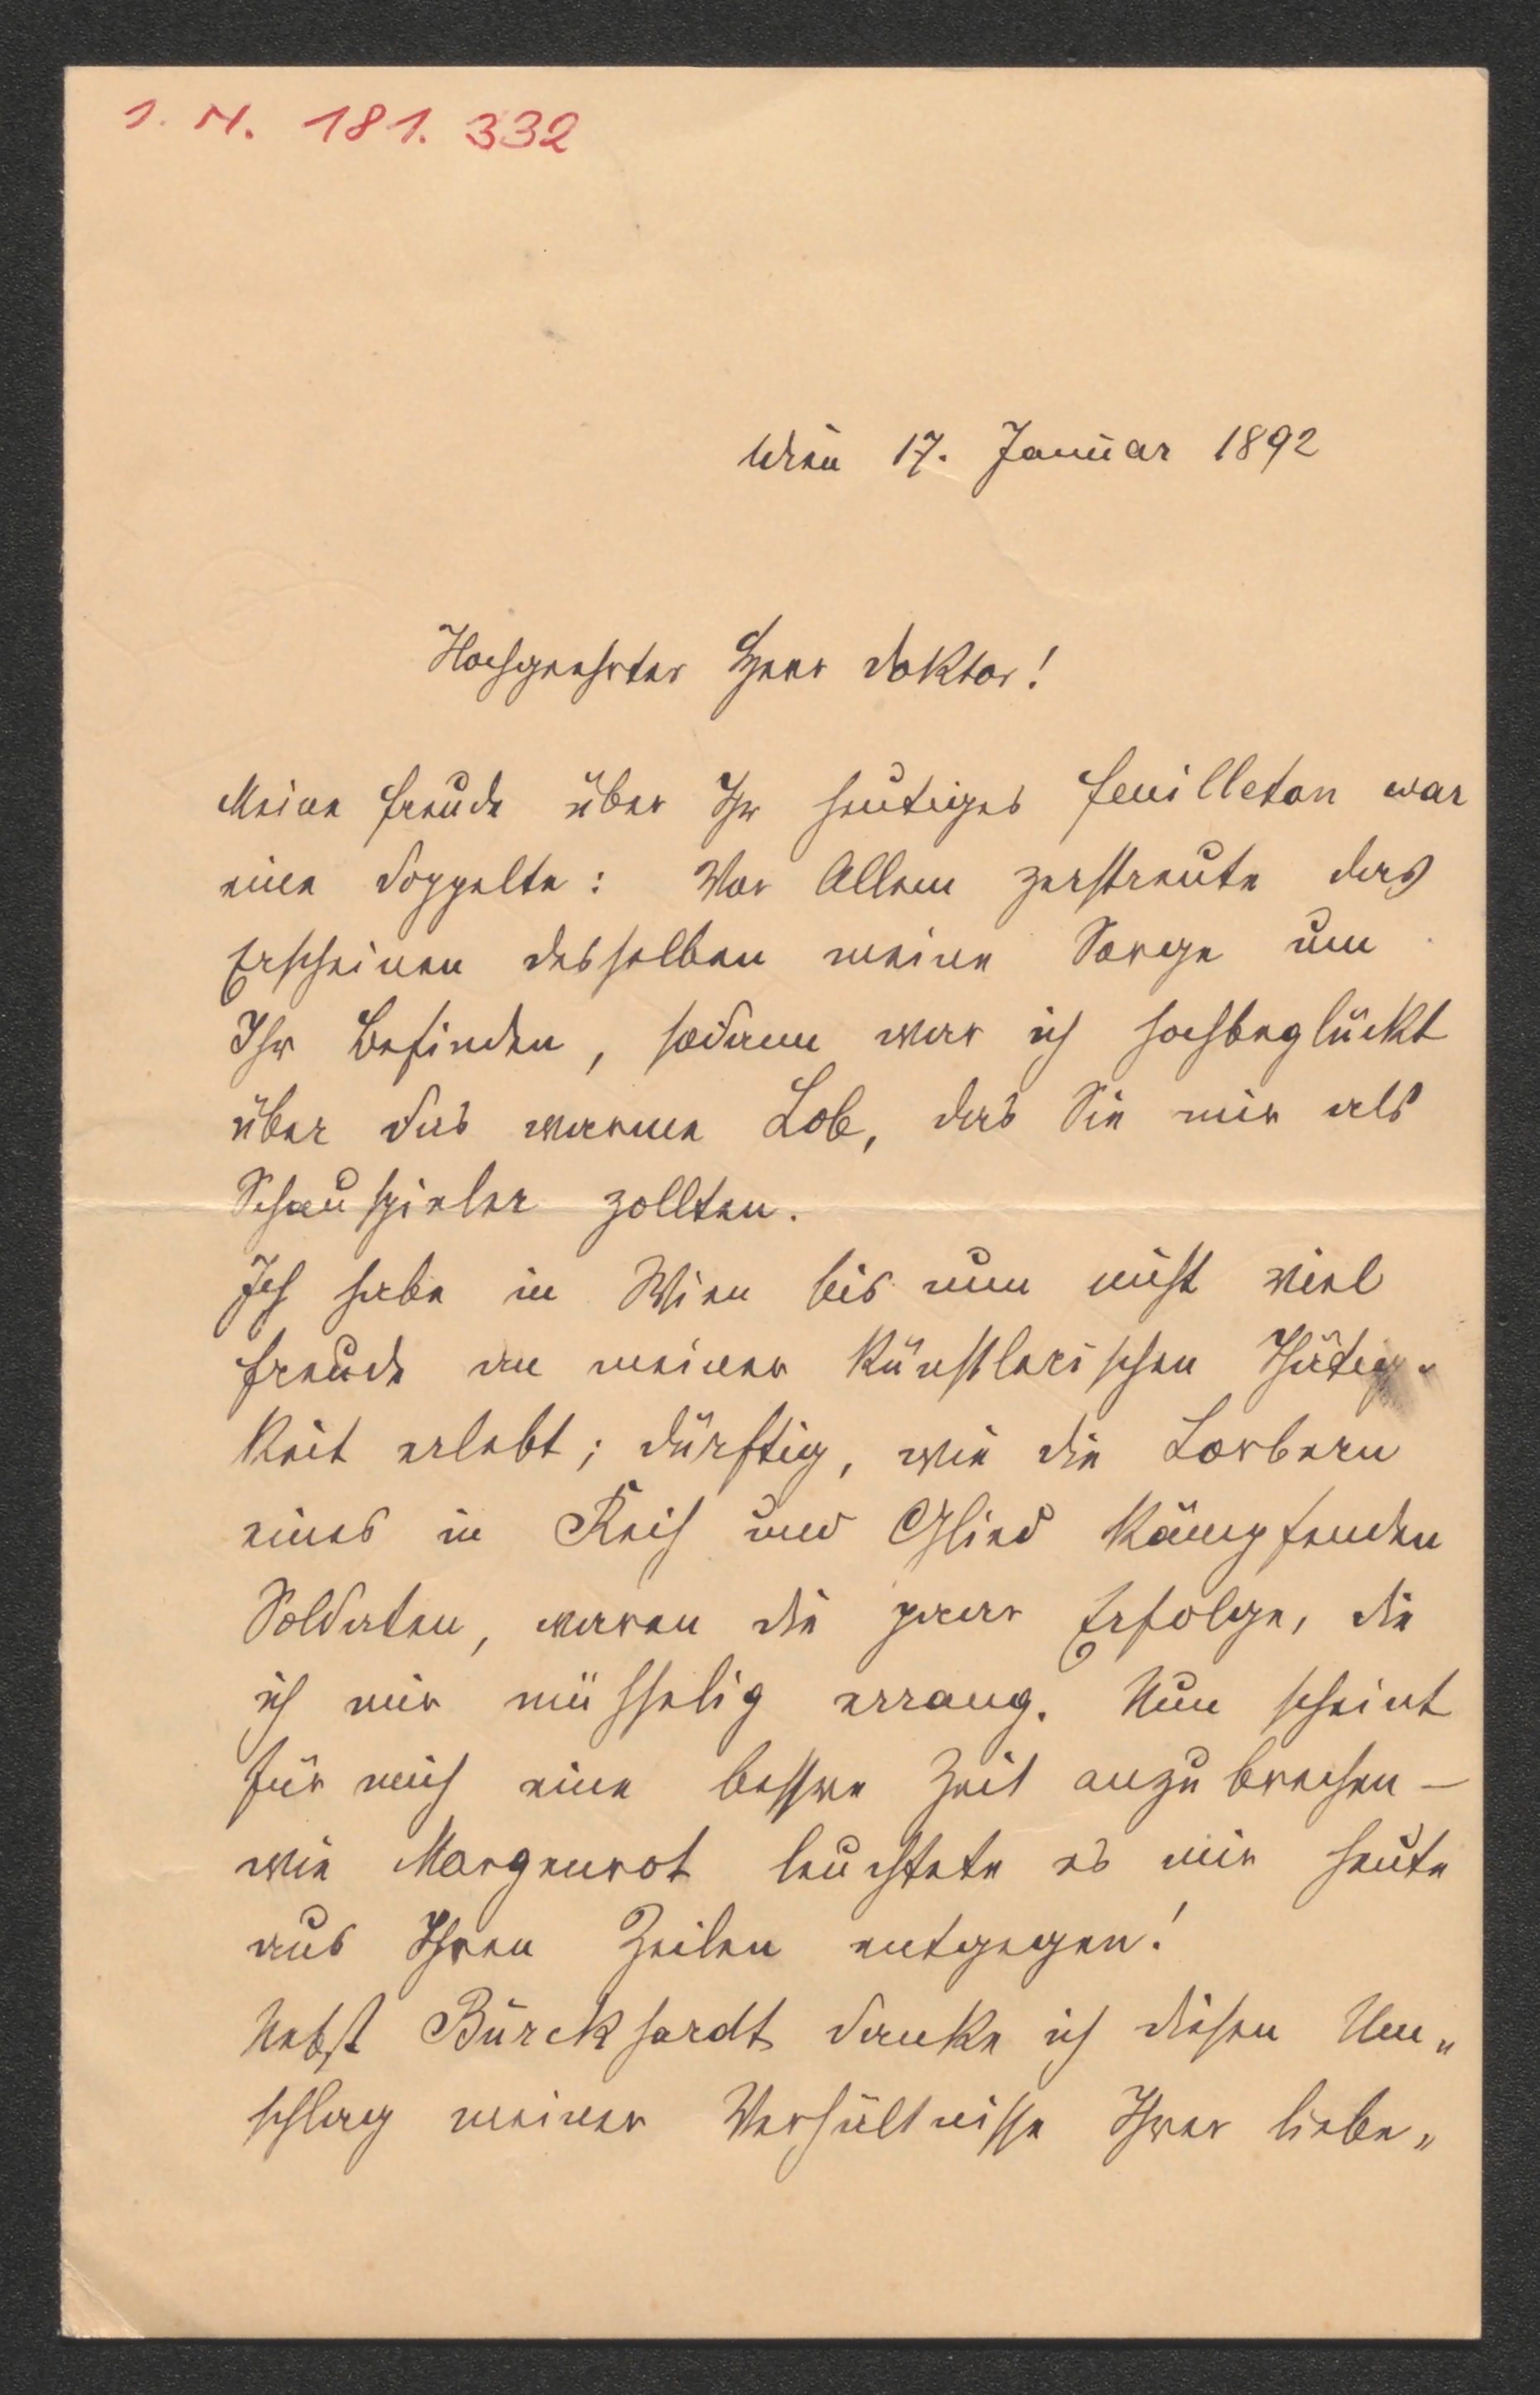 I. N. 181. 332
Wien 17. Januar 1892
Hochgeehrter Herr Doktor!
Meine Freude über Ihr heutiges Feuilleton war
eine doppelte: Vor Allem zerstreute das
Erscheinen desselben meine Sorge um
Ihr Befinden, sodann war ich hochbeglückt
über das warme Lob, das Sie mir als
Schauspieler zollten.
Ich habe in Wien bis nun nicht viel
Freude an meiner künstlerischen Thätig-
keit erlebt; dürftig, wie die Lorbern
eines in Reih und Glied kämpfenden
Soldaten, waren die paar Erfolge, die
ich mir mühselig errang. Nun scheint
für mich eine bessre Zeit anzubrechen –
wie Morgenrot leuchtete es mir heute
aus Ihren Zeilen entgegen!
Nebst Burckhardt danke ich diesen Um„
schlag meiner Verhältnisse Ihrer liebe„